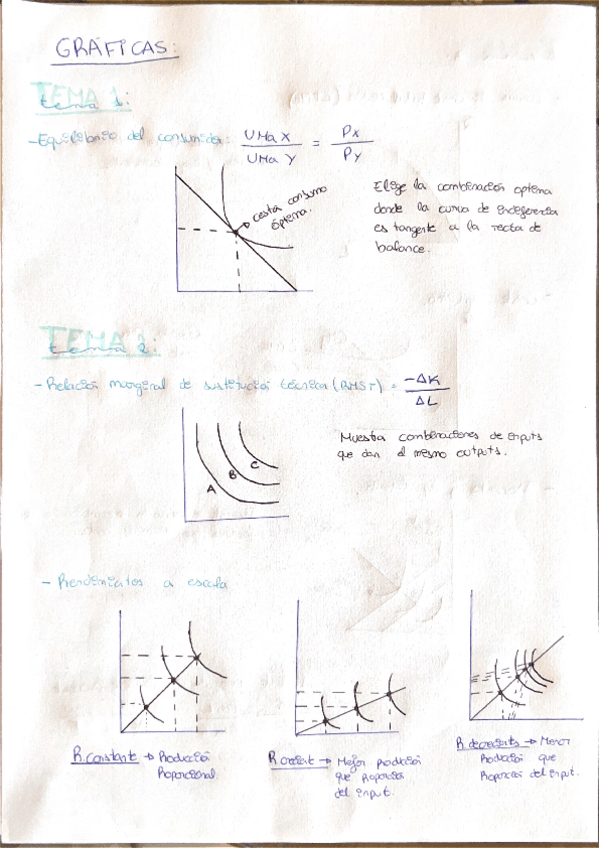 GRÁFICAS:
TEMA 1:
tema 1:
- Equilibrio del consumidor: UMa X / UMa Y = Px / Py
cesta consumo
óptima.
Elige la combinación optima
donde la curva de indiferencia
es tangente a la recta de
balance.
TEMA 2:
tema 2:
- Relación marginal de sustitución técnica (RMST) = -ΔK / ΔL
A B C
Muestra combinaciones de inputs
que dan el mismo outputs.
- Rendimientos a escala
R. constante → Producción
Proporcional
R creciente → Mayor producción
que proporción
del input.
R. decreciente → Menor
Producción que
Proporción del input.